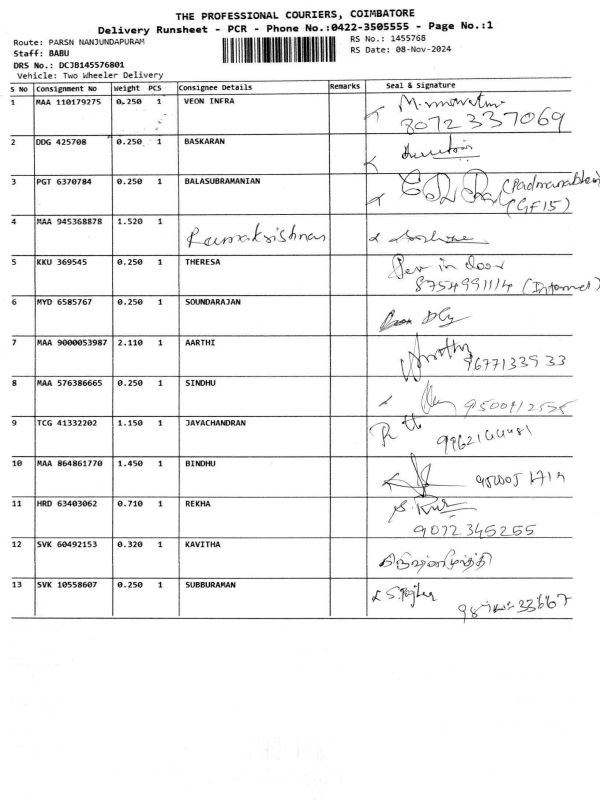 THE PROFESSIONAL COURIERS, COIMBATORE
Delivery Runsheet - PCR - Phone No.:0422-3505555 - Page No.:1
Route: PARSN NANJUNDAPURAM
RS No.: 1455768
Staff: BABU
RS Date: 08-Nov-2024
DRS No.: DCJB145576801
Vehicle: Two Wheeler Delivery
S No Consignment No Weight PCS Consignee Details Remarks Seal & Signature
1 MAA 110179275 0.250 1 VEON INFRA
8072337069
2 DDG 425708 0.250 1 BASKARAN
3 PGT 6370784 0.250 1 BALASUBRAMANIAN
(GF15)
4 MAA 945368878 1.520 1 Ramakrishnan
5 KKU 369545 0.250 1 THERESA
in door
8754991114
6 MYD 6585767 0.250 1 SOUNDARAJAN
7 MAA 9000053987 2.110 1 AARTHI
9677133933
8 MAA 576386665 0.250 1 SINDHU
9 TCG 41332202 1.150 1 JAYACHANDRAN
10 MAA 864861770 1.450 1 BINDHU
11 HRD 63403062 0.710 1 REKHA
9072345255
12 SVK 60492153 0.320 1 KAVITHA
13 SVK 10558607 0.250 1 SUBBURAMAN